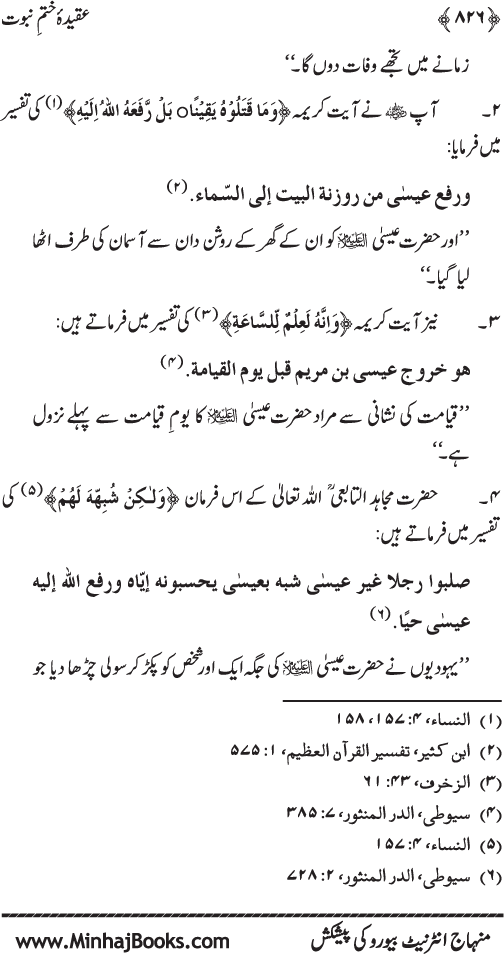 ﴿۸۲۶﴾ عقیدۂ ختمِ نبوت
زمانے میں تجھے وفات دوں گا۔‘‘
۲۔ آپ ﷺ نے آیت کریمہ ﴿وَمَا قَتَلُوْهُ يَقِيْنًا○ بَلْ رَّفَعَهُ اللهُ اِلَيْهِ﴾ (۱) کی تفسیر
میں فرمایا:
ورفع عيسٰى من روزنة البيت إلى السّماء. (۲)
’’اور حضرت عیسیٰ علیہ السلام کو ان کے گھر کے روشن دان سے آسمان کی طرف اٹھا
لیا گیا۔‘‘
۳۔ نیز آیت کریمہ ﴿وَاِنَّهٗ لَعِلْمٌ لِّلسَّاعَةِ﴾ (۳) کی تفسیر میں فرماتے ہیں:
هو خروج عيسى بن مريم قبل يوم القيامة. (۴)
’’قیامت کی نشانی سے مراد حضرت عیسیٰ علیہ السلام کا یومِ قیامت سے پہلے نزول
ہے۔‘‘
۴۔ حضرت مجاہد التابعیؒ اللہ تعالیٰ کے اس فرمان ﴿وَلٰكِنْ شُبِّهَ لَهُمْ﴾ (۵) کی
تفسیر میں فرماتے ہیں:
صلبوا رجلا غير عيسٰى شبه بعيسٰى يحسبونه إيّاه ورفع الله إليه
عيسٰى حيًا. (۶)
’’یہودیوں نے حضرت عیسیٰ علیہ السلام کی جگہ ایک اور شخص کو پکڑ کر سولی چڑھا دیا جو
(۱) النساء، ۴: ۱۵۷، ۱۵۸
(۲) ابن كثير، تفسير القرآن العظيم، ۱: ۵۷۵
(۳) الزخرف، ۴۳: ۶۱
(۴) سيوطى، الدر المنثور، ۷: ۳۸۵
(۵) النساء، ۴: ۱۵۷
(۶) سيوطى، الدر المنثور، ۲: ۷۲۸
منہاج انٹرنیٹ بیورو کی پیشکش www.MinhajBooks.com